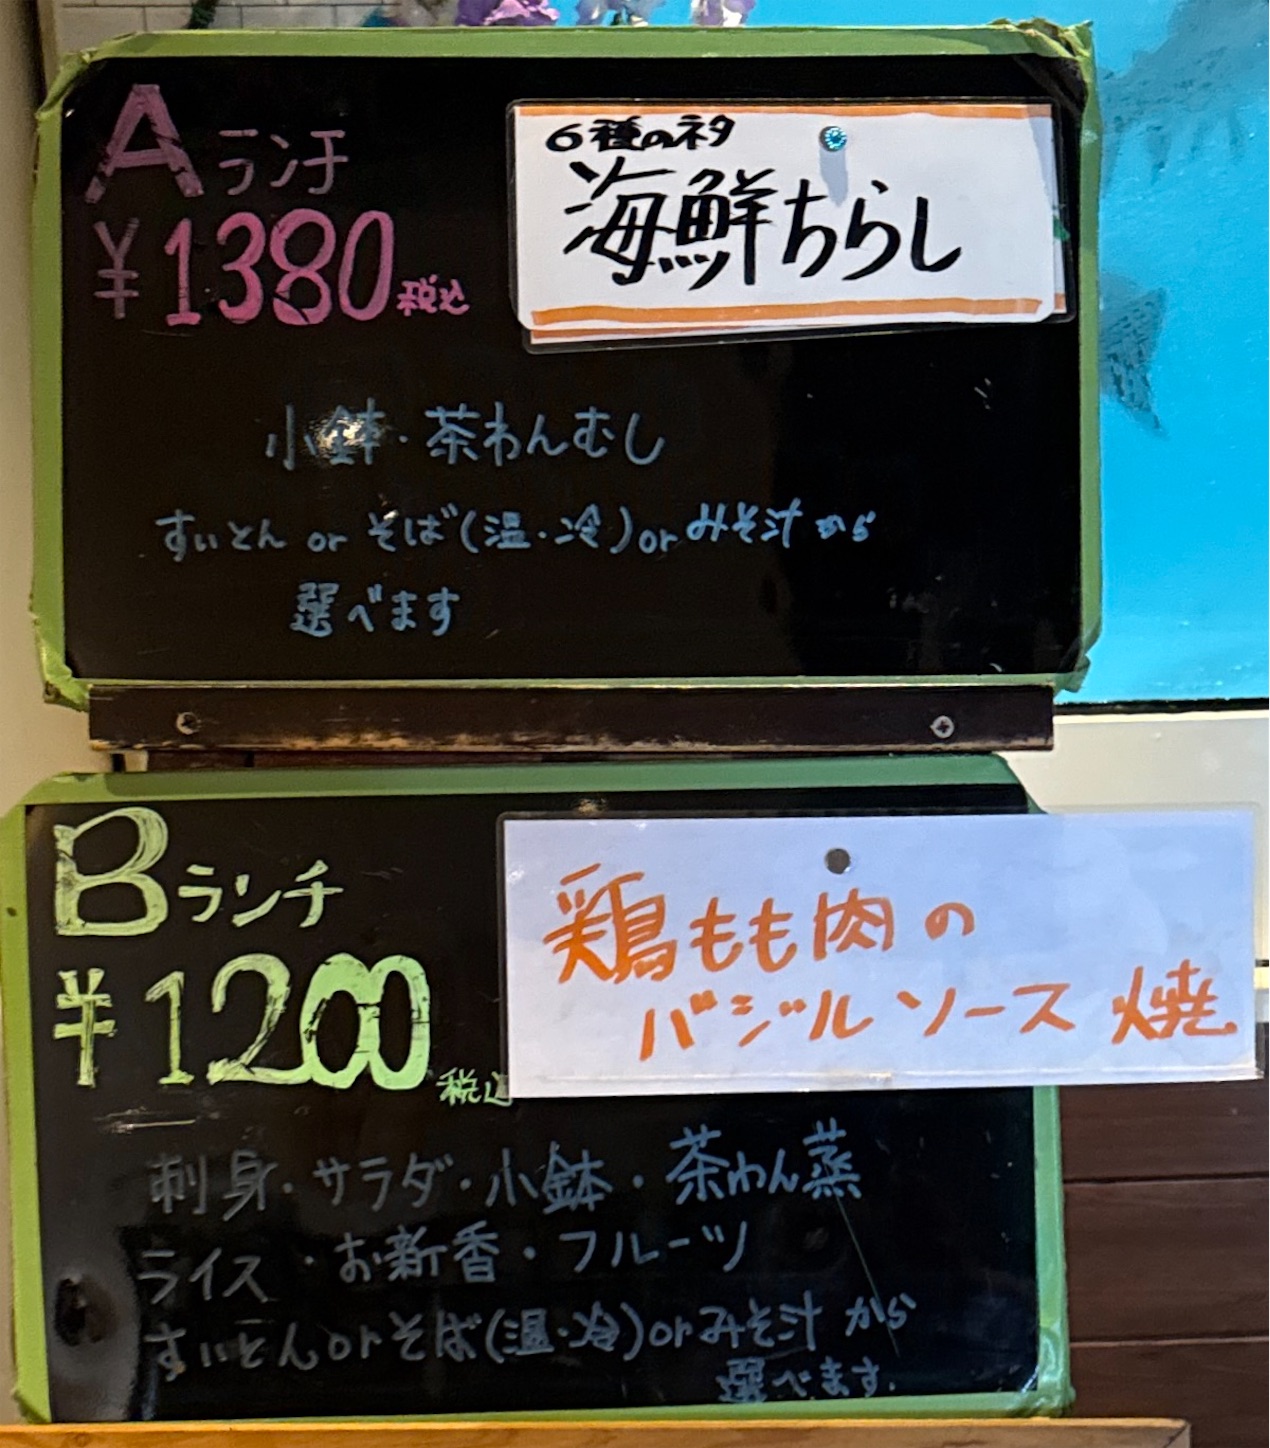 Aランチ
¥1380税込
6種のネタ
海鮮ちらし
小鉢・茶わんむし
すいとん or そば(温・冷)orみそ汁から
選べます
Bランチ
¥1200税込
鶏もも肉の
バジルソース焼
刺身・サラダ・小鉢・茶わん蒸
ライス・お新香・フルーツ
すいとんorそば(温・冷)orみそ汁から
選べます.